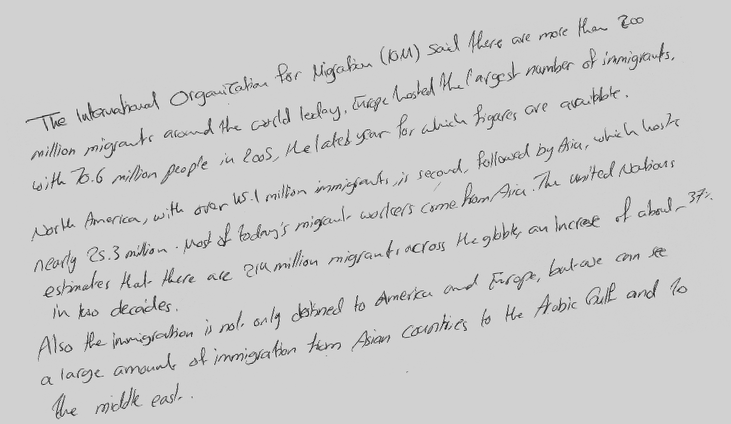 The International Organization for Migration (IOM) said there are more than 200
million migrants around the world today. Europe hosted the largest number of immigrants,
with 70.6 million people in 2005, the latest year for which figures are available.
North America, with over 45.1 million immigrants, is second, followed by Asia, which hosts
nearly 25.3 million. Most of today's migrant workers come from Asia. The united Nations
estimates that there are 214 million migrants across the globe, an increase of about 37%
in two decades.
Also the immigration is not only destined to America and Europe, but we can see
a large amount of immigration from Asian countries to the Arabic Gulf and to
the middle east.